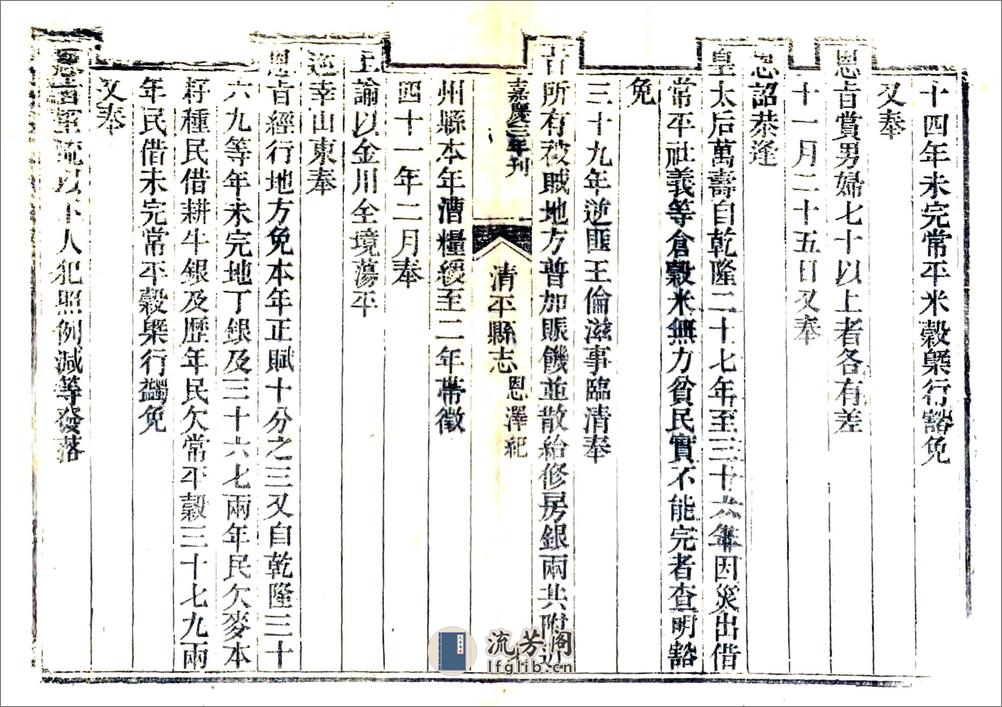 十四年未完常平米穀槩行豁免
又奉
恩旨賞男婦七十以上者各有差
十一月二十五日又奉
恩詔恭逢
皇太后萬壽自乾隆二十七年至三十六年因災出借
常平社義等倉穀米無力貧民實不能完者查明豁
免
三十九年逆匪王倫滋事臨清奉
旨所有被賊地方普加賑饑並散給修房銀兩共附近
嘉慶三年刊
清平縣志
恩澤紀
州縣本年漕糧緩至二年帶徵
四十一年二月奉
上諭以金川全境蕩平
巡幸山東奉
恩旨經行地方免本年正賦十分之三又自乾隆三十
六九等年未完地丁銀及三十六七兩年民欠麥本
籽種民借耕牛銀及歷年民欠常平穀三十七九兩
年民借未完常平穀槩行蠲免
又奉
恩旨軍流以下人犯照例減等發落
流芳阁
lfglib.cn